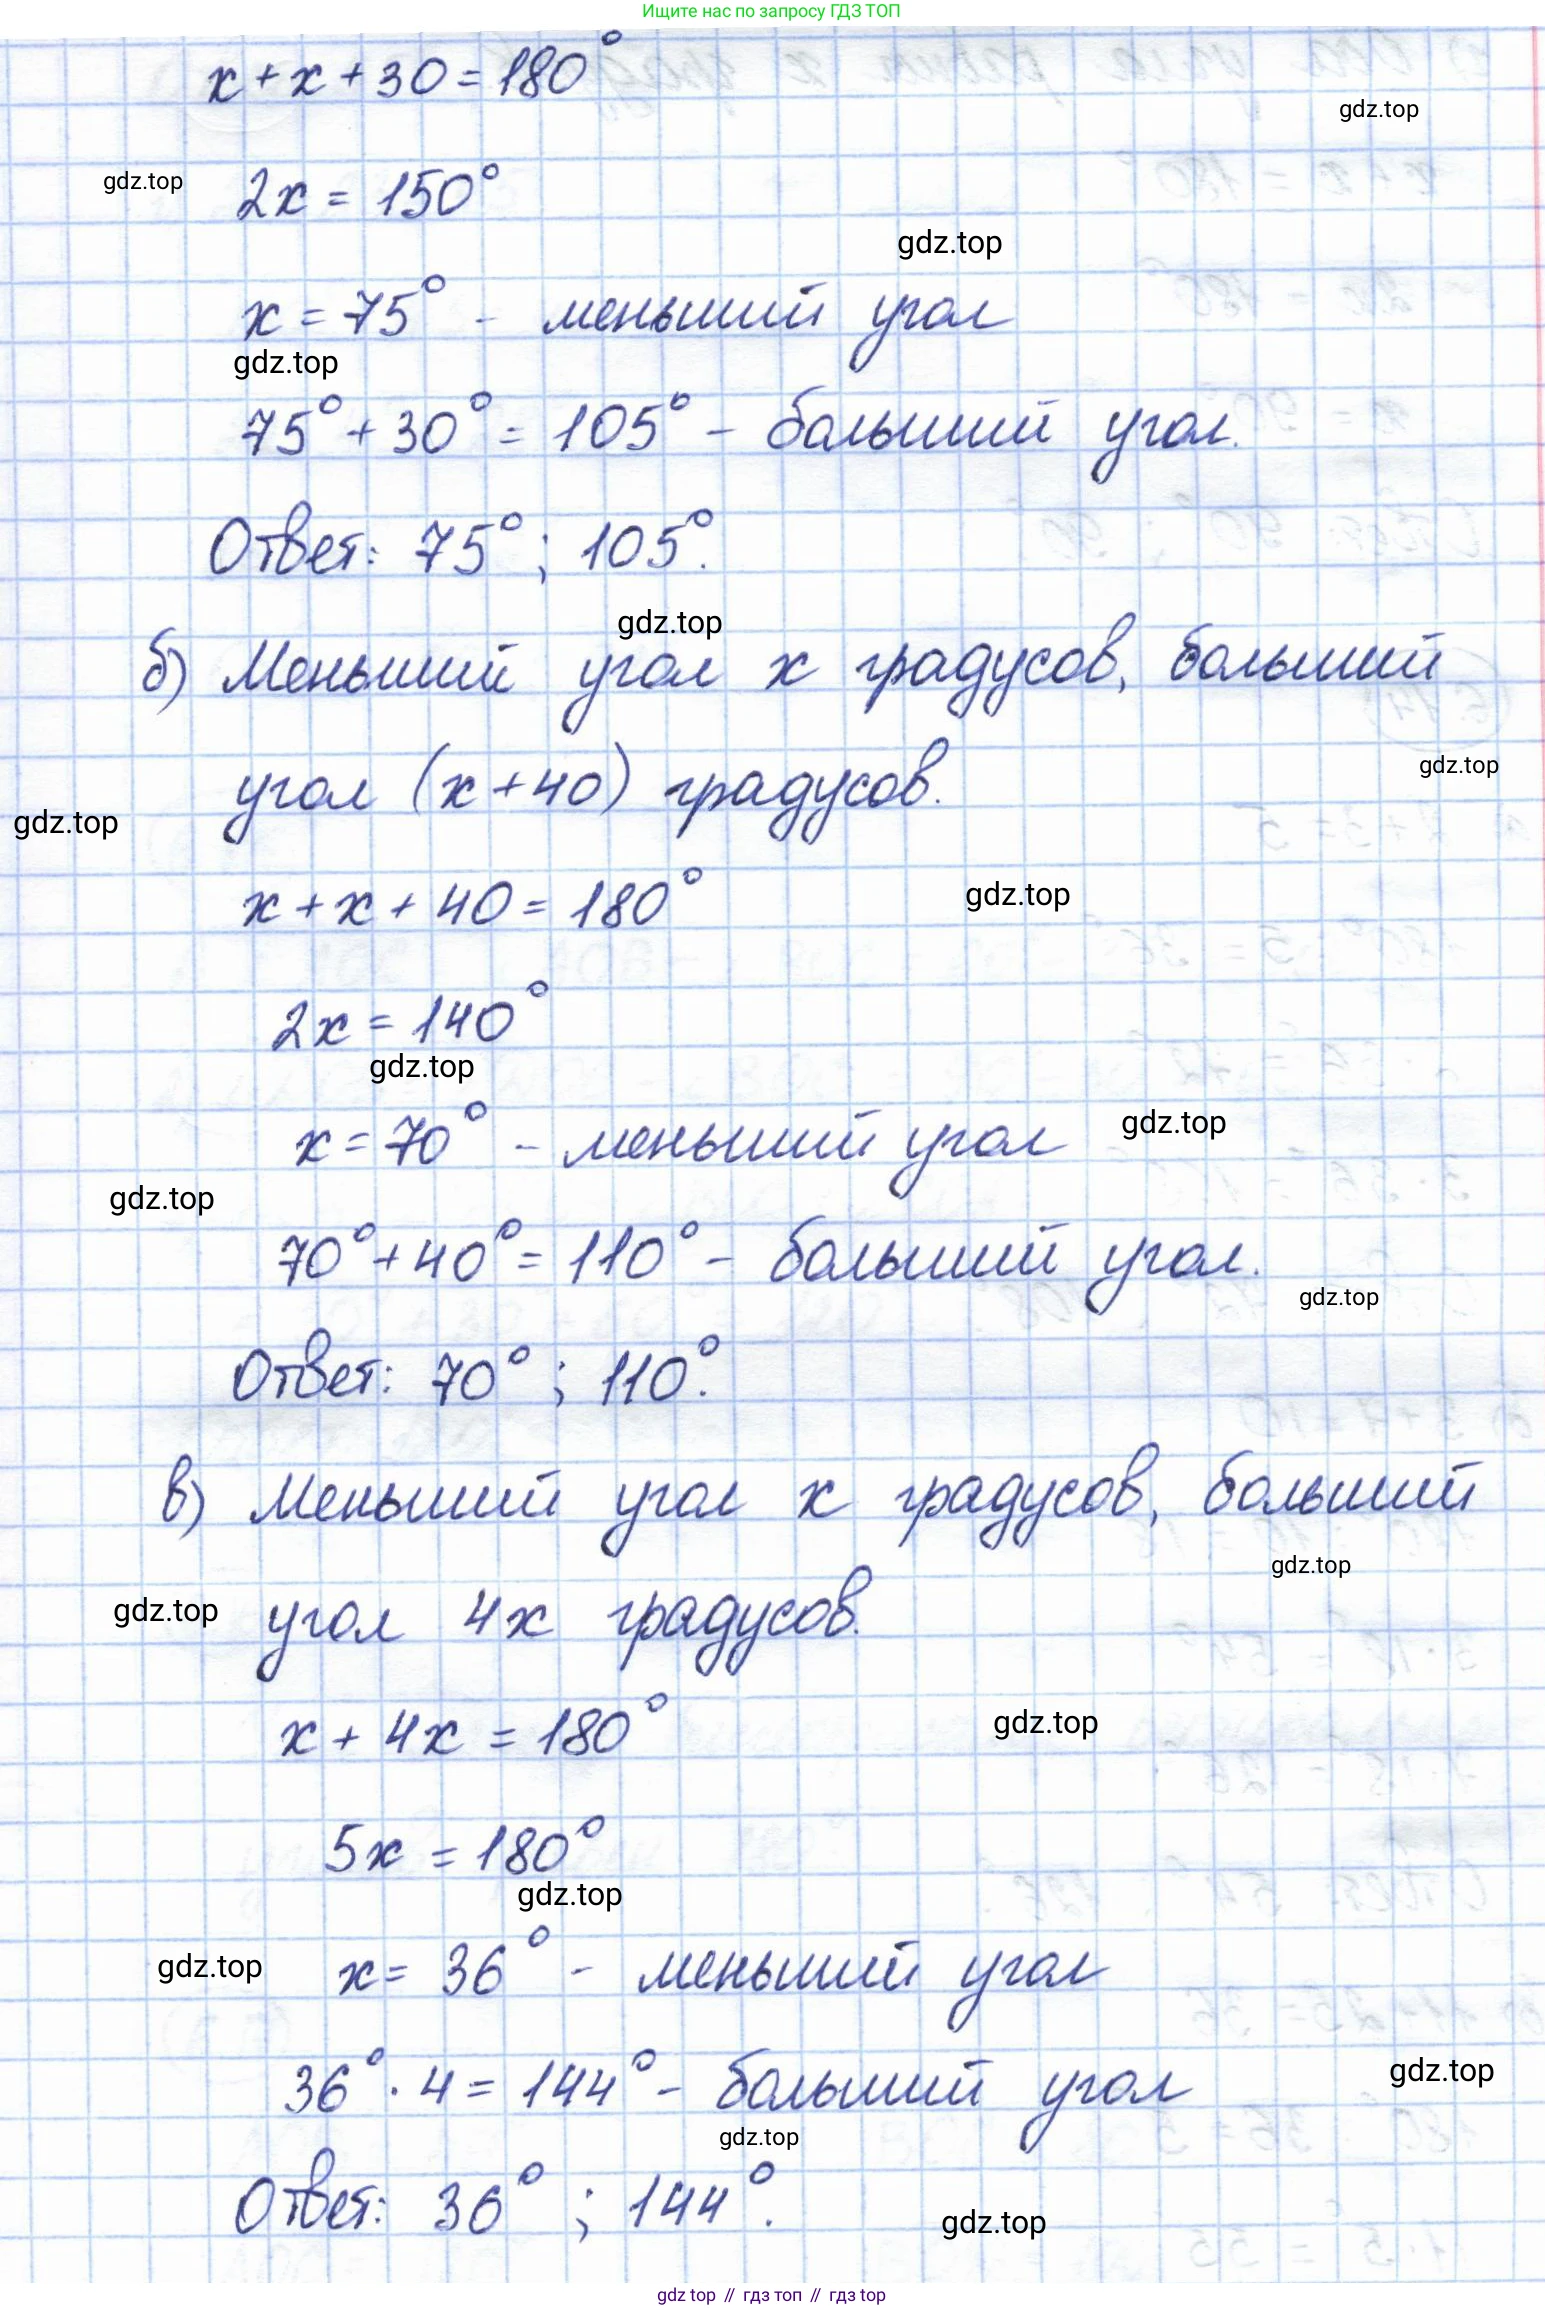 Ищите нас по запросу ГДЗ ТОП
x + x + 30 = 180°
gdz.top
gdz.top
2x = 150°
gdz.top
x = 75° - меньший угол
gdz.top
75° + 30° = 105° - больший угол.
Ответ: 75°; 105°.
gdz.top
б) Меньший угол x градусов, больший
gdz.top
угол (x + 40) градусов.
gdz.top
x + x + 40 = 180°
gdz.top
2x = 140°
gdz.top
x = 70° - меньший угол
gdz.top
gdz.top
70° + 40° = 110° - больший угол.
gdz.top
Ответ: 70°; 110°.
в) Меньший угол x градусов, больший
gdz.top
gdz.top
угол 4x градусов.
x + 4x = 180°
gdz.top
5x = 180°
gdz.top
gdz.top
x = 36° - меньший угол
36° · 4 = 144° - больший угол
gdz.top
gdz.top
Ответ: 36°; 144°.
gdz.top
gdz top // гдз топ // гдз top